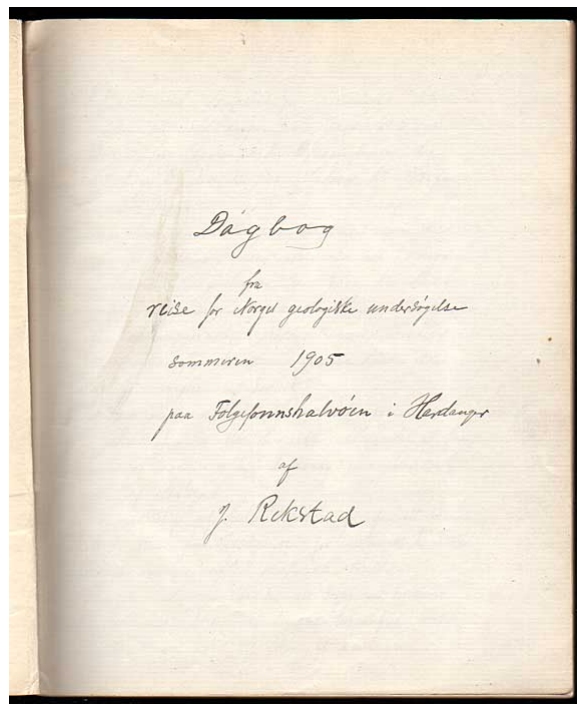 Dagbog
fra
reise for Norges geologiske undersögelse
sommeren 1905
paa Folgefonnshalvöen i Hardanger
af
J. Rekstad